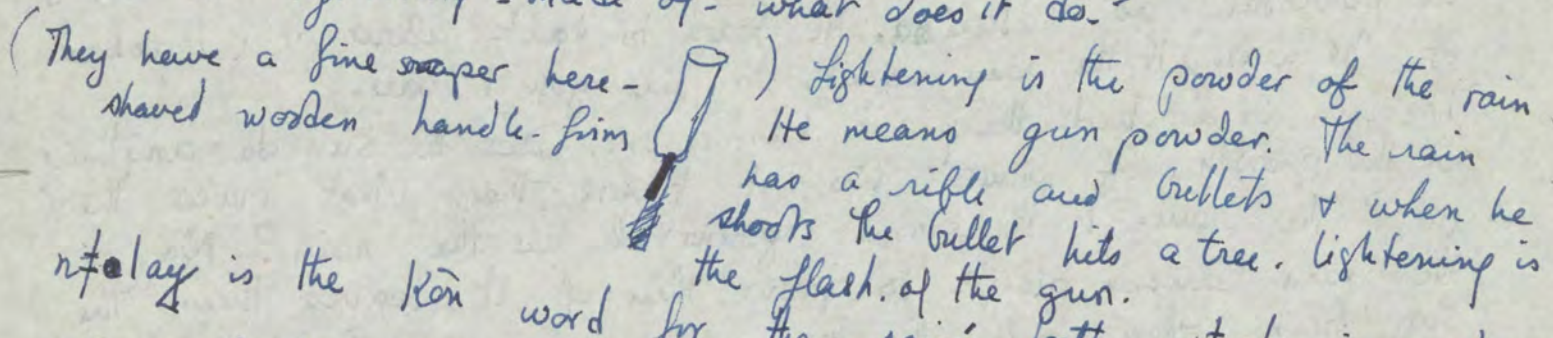 made of - what does it do -
(They have a fine scraper here -
shaved wooden handle - firm
) Lightening is the powder of the rain
He means gun powder. The rain
has a rifle and bullets & when he
shoots the bullet hits a tree. Lightening is
the flash. of the gun.
is the Kõn
word for the